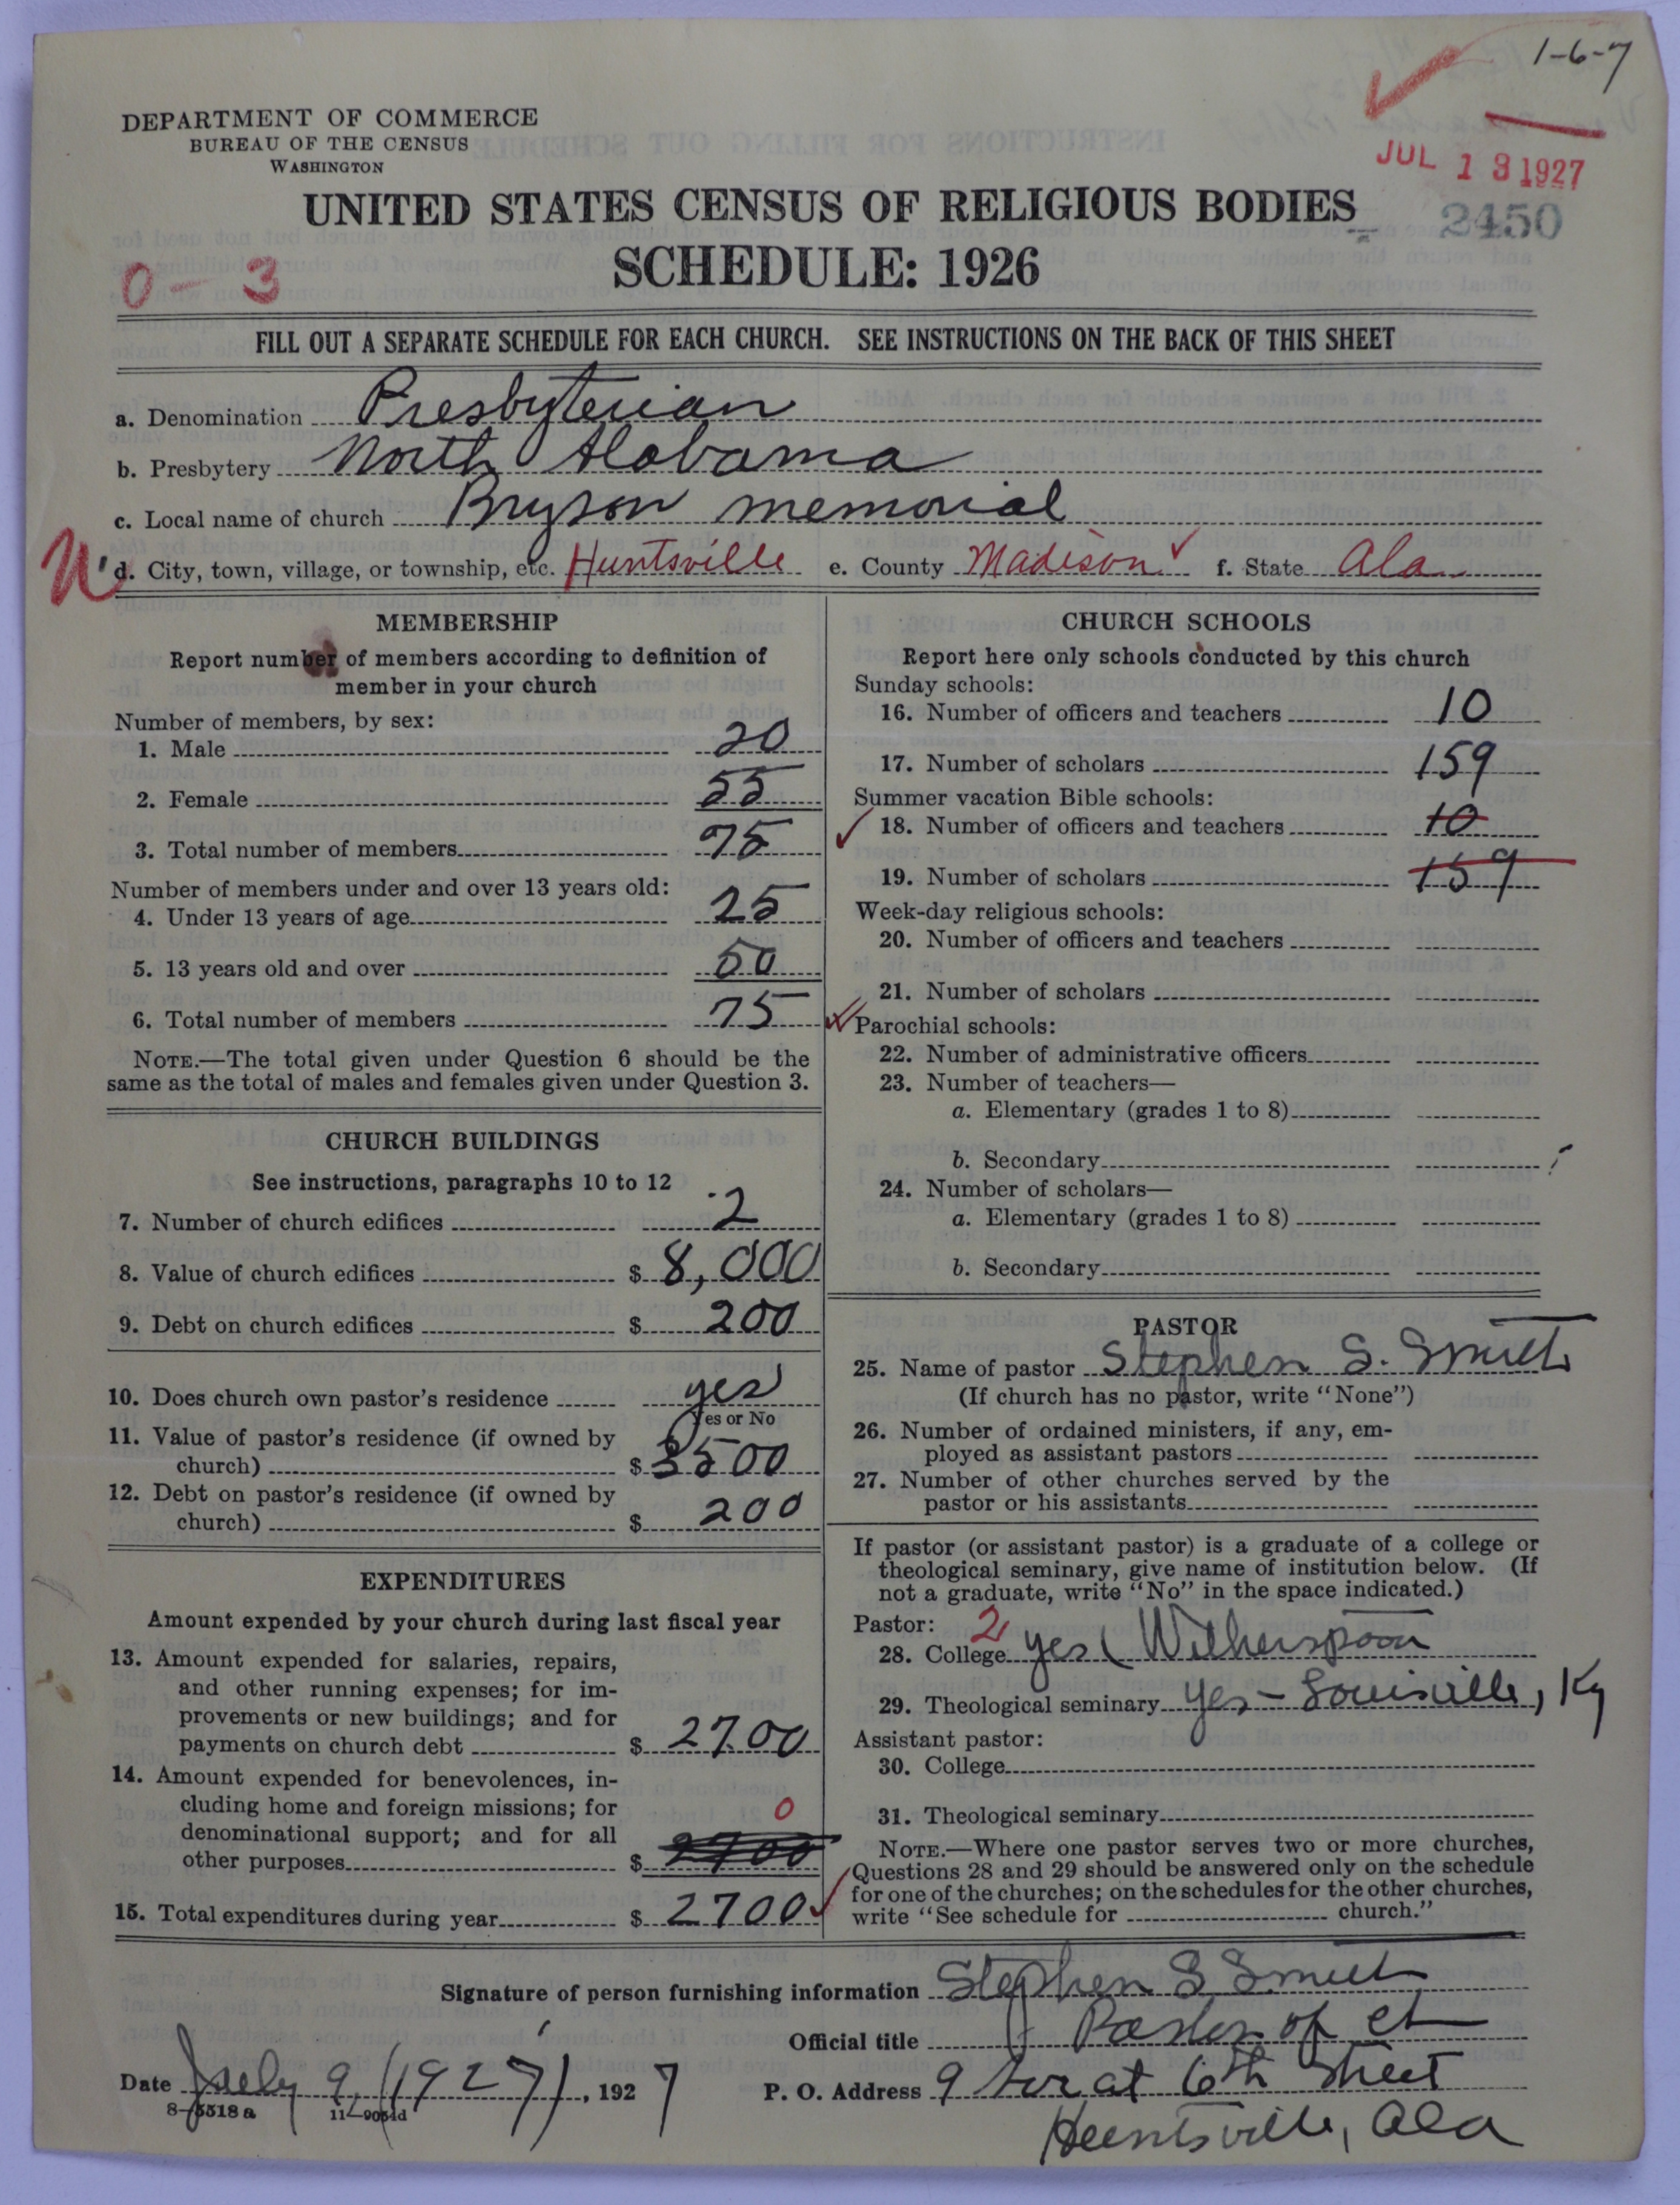 1-6-7
JUL 13 1927
2450
DEPARTMENT OF COMMERCE
BUREAU OF THE CENSUS
WASHINGTON
UNITED STATES CENSUS OF RELIGIOUS BODIES
SCHEDULE: 1926
0-3
FILL OUT A SEPARATE SCHEDULE FOR EACH CHURCH. SEE INSTRUCTIONS ON THE BACK OF THIS SHEET
a. Denomination Presbyterian
b. Presbytery North Alabama
c. Local name of church Bryson memorial
d. City, town, village, or township, etc. Huntsville e. County Madison f. State Ala
MEMBERSHIP
Report number of members according to definition of
member in your church
Number of members, by sex:
1. Male 20
2. Female 55
3. Total number of members 75
Number of members under and over 13 years old:
4. Under 13 years of age 25
5. 13 years old and over 50
6. Total number of members 75
NOTE.—The total given under Question 6 should be the
same as the total of males and females given under Question 3.
CHURCH BUILDINGS
See instructions, paragraphs 10 to 12
7. Number of church edifices 2
8. Value of church edifices $ 8,000
9. Debt on church edifices $ 200
10. Does church own pastor's residence yes
Yes or No
11. Value of pastor's residence (if owned by
church) $ 3500
12. Debt on pastor's residence (if owned by
church) $ 200
EXPENDITURES
Amount expended by your church during last fiscal year
13. Amount expended for salaries, repairs,
and other running expenses; for im-
provements or new buildings; and for
payments on church debt $ 2700
14. Amount expended for benevolences, in-
cluding home and foreign missions; for
denominational support; and for all 0
other purposes $ 2700
15. Total expenditures during year $ 2700
CHURCH SCHOOLS
Report here only schools conducted by this church
Sunday schools:
16. Number of officers and teachers 10
17. Number of scholars 159
Summer vacation Bible schools:
18. Number of officers and teachers 10
19. Number of scholars 159
Week-day religious schools:
20. Number of officers and teachers
21. Number of scholars
Parochial schools:
22. Number of administrative officers
23. Number of teachers—
a. Elementary (grades 1 to 8)
b. Secondary
24. Number of scholars—
a. Elementary (grades 1 to 8)
b. Secondary
PASTOR
25. Name of pastor Stephen S. Smith
(If church has no pastor, write "None")
26. Number of ordained ministers, if any, em-
ployed as assistant pastors
27. Number of other churches served by the
pastor or his assistants
If pastor (or assistant pastor) is a graduate of a college or
theological seminary, give name of institution below. (If
not a graduate, write "No" in the space indicated.)
Pastor: 2
28. College yes ( Witherspoon
29. Theological seminary yes - Louisville, Ky
Assistant pastor:
30. College
31. Theological seminary
NOTE.—Where one pastor serves two or more churches,
Questions 28 and 29 should be answered only on the schedule
for one of the churches; on the schedules for the other churches,
write "See schedule for church."
Signature of person furnishing information Stephen S Smith
Official title Pastor of ch
Date July 9, (1927), 1927 P. O. Address 9 Ave at 6th Street
8-5518 a 11-9054d
Huntsville, Ala